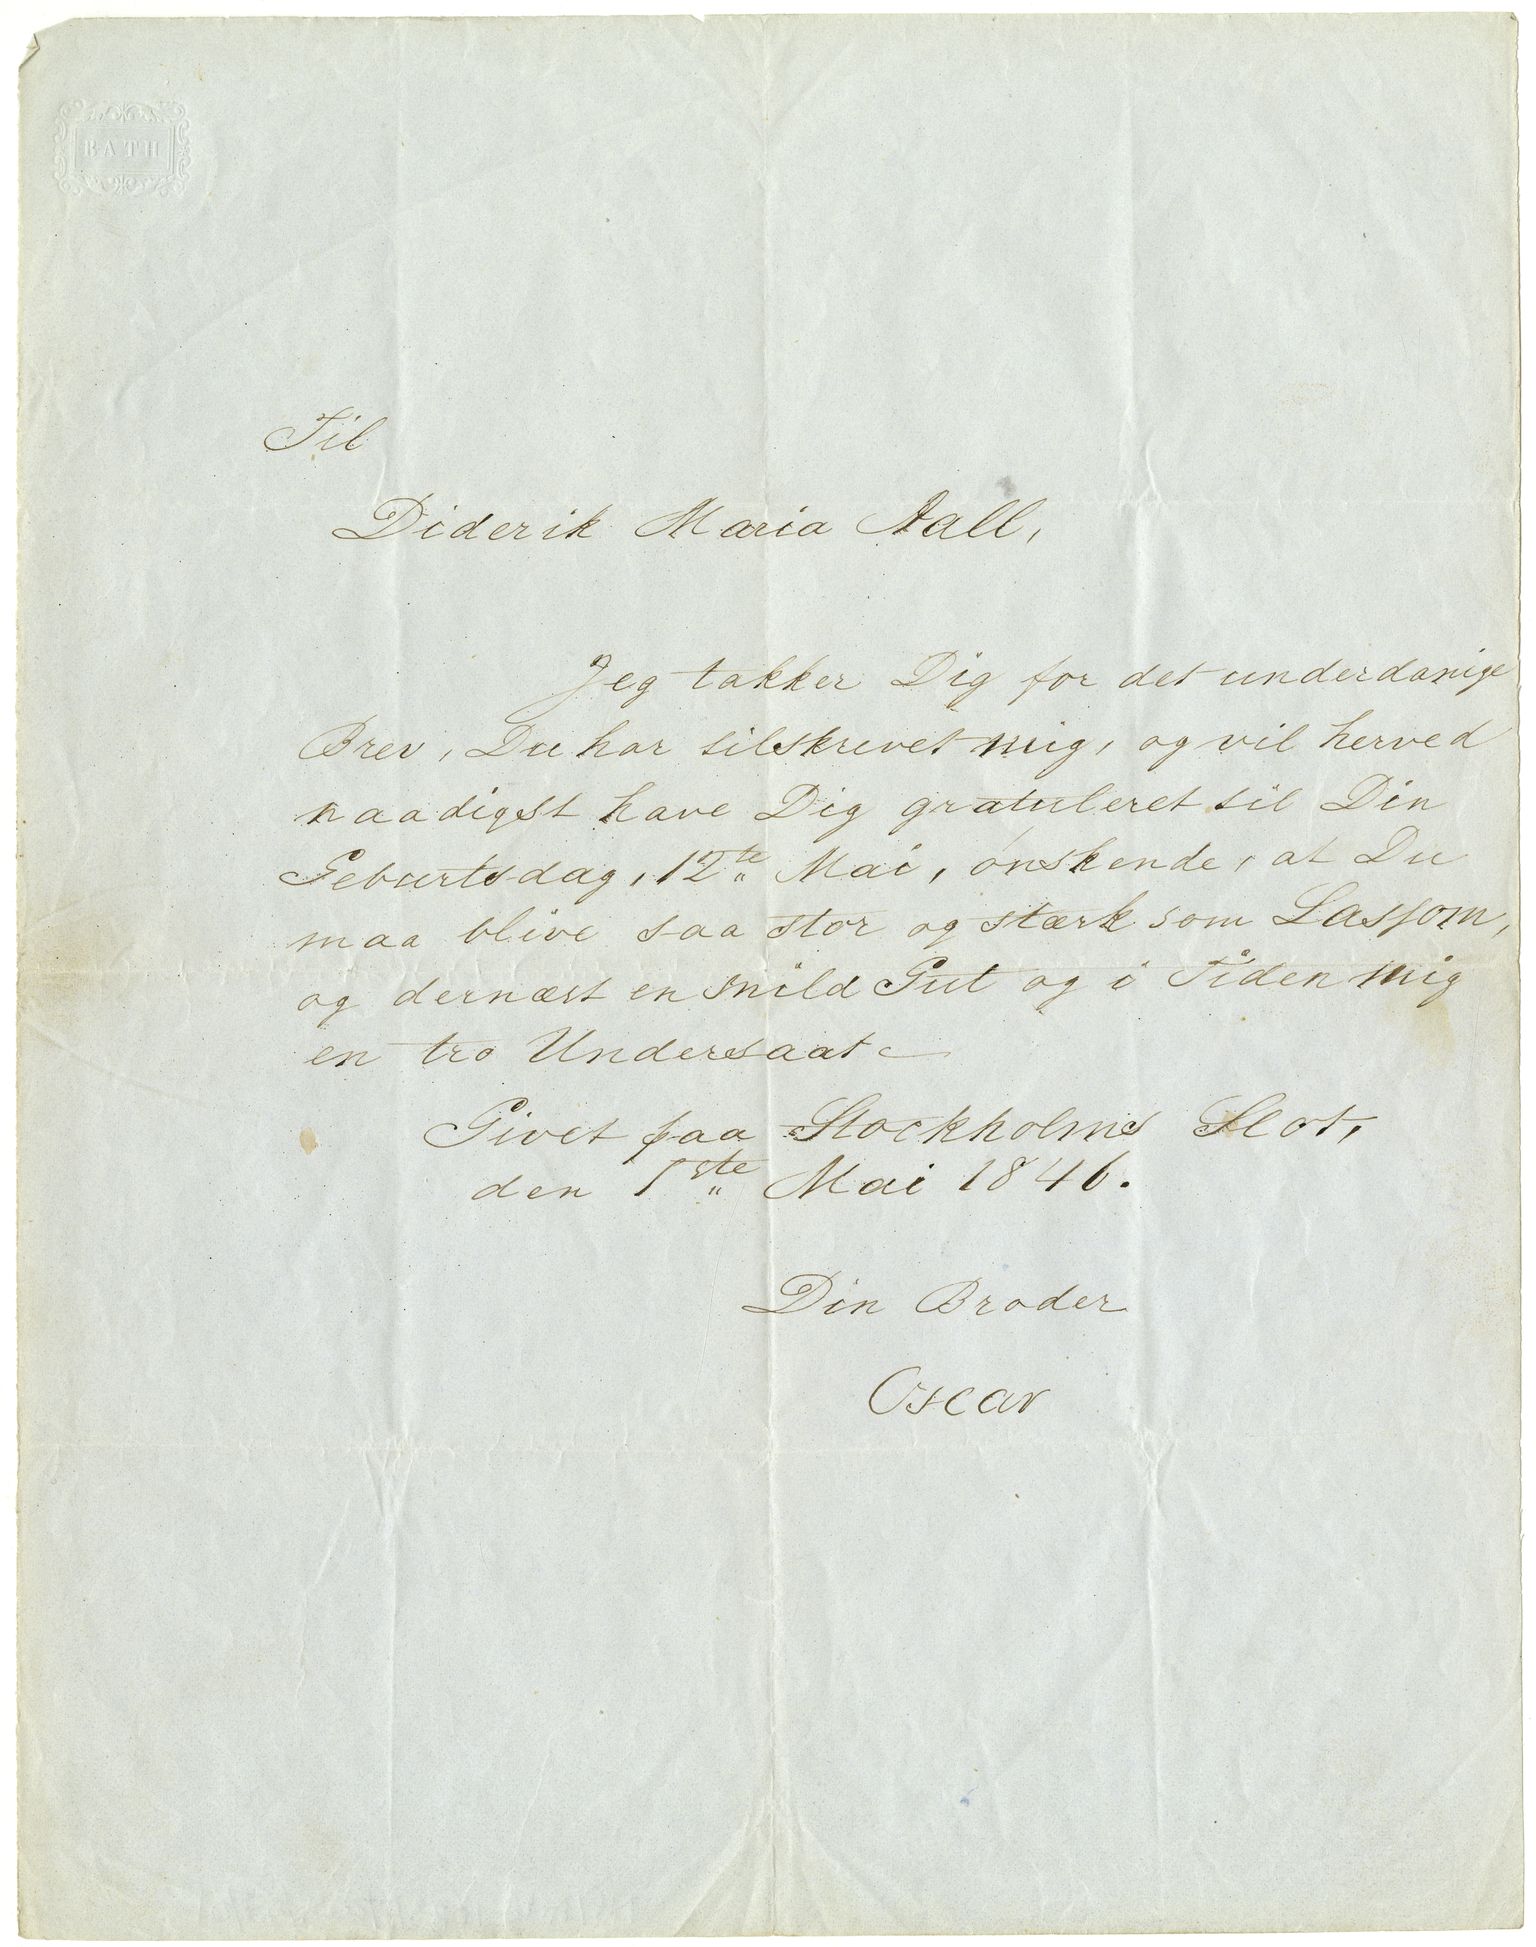 BATH
Til
Diderik Maria Aall,
Jeg takker Dig for det underdanige
Brev, Du har tilskrevet mig, og vil herved
naadigst have Dig gratuleret til Din
Geburtsdag, 12te Mai, ønskende, at Du
maa blive saa stor og stærk som Lassom,
og dernæst en snild Gut og i Tiden mig
en tro Undersaat.
Givet paa Stockholms Slot,
den 1ste Mai 1846.
Din Broder
Oscar